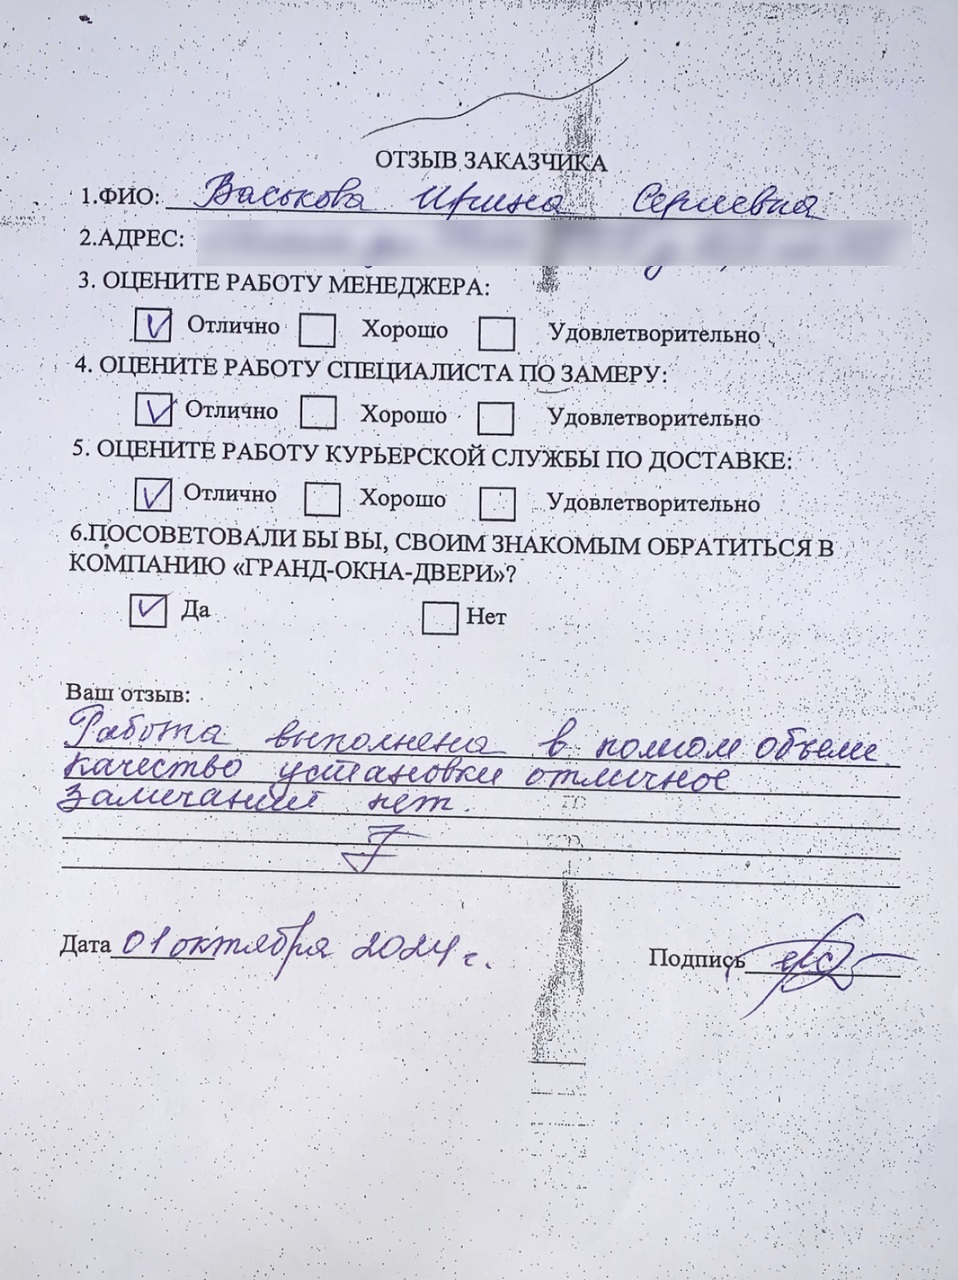 ОТЗЫВ ЗАКАЗЧИКА
1.ФИО: Васькова Ирина Сергеевна
2.АДРЕС:
3. ОЦЕНИТЕ РАБОТУ МЕНЕДЖЕРА:
Отлично Хорошо Удовлетворительно
4. ОЦЕНИТЕ РАБОТУ СПЕЦИАЛИСТА ПО ЗАМЕРУ:
Отлично Хорошо Удовлетворительно
5. ОЦЕНИТЕ РАБОТУ КУРЬЕРСКОЙ СЛУЖБЫ ПО ДОСТАВКЕ:
Отлично Хорошо Удовлетворительно
6.ПОСОВЕТОВАЛИ БЫ ВЫ, СВОИМ ЗНАКОМЫМ ОБРАТИТЬСЯ В
КОМПАНИЮ «ГРАНД-ОКНА-ДВЕРИ»?
Да Нет
Ваш отзыв:
Работа выполнена в полном объеме
качество установки отличное
Замечаний нет.
Дата 01 октября 2024 г. Подпись